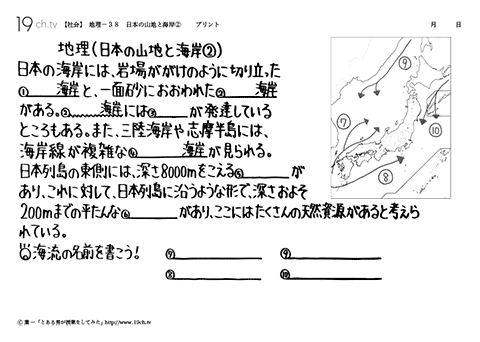 19ch.tv 【社会】 地理－３８ 日本の山地と海岸② プリント 月 日
地理(日本の山地と海岸②)
日本の海岸には、岩場ががけのように切り立った
①______海岸と、一面砂におおわれた②______海岸
がある。②______海岸には③______が発達している
ところもある。また、三陸海岸や志摩半島には、
海岸線が複雑な④______海岸が見られる。
日本列島の東側には、深さ8000mをこえる⑤______が
あり、これに対して、日本列島に沿うような形で、深さおよそ
200mまでの平たんな⑥______があり、ここにはたくさんの天然資源があると考えら
れている。
海流の名前を書こう!
⑦______ ⑨______
⑧______ ⑩______
⑨
⑦
⑩
⑧
© 葉一「とある男が授業をしてみた」http://www.19ch.tv